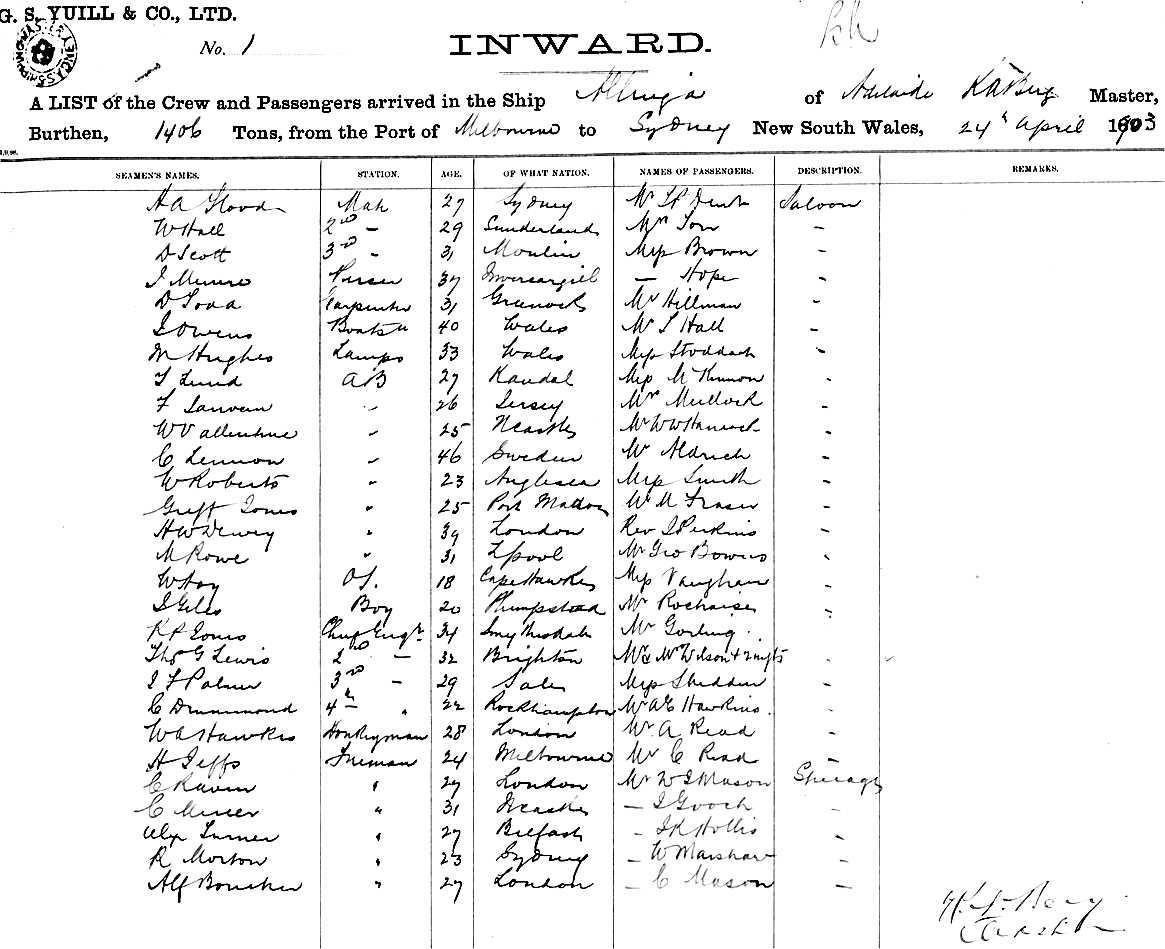 G. S. YUILL & CO., LTD.
No. 1 INWARD.
A LIST of the Crew and Passengers arrived in the Ship Allinga of Adelaide Master,
Burthen, 1406 Tons, from the Port of Melbourne to Sydney New South Wales, 24th April 1903
SEAMEN'S NAMES. STATION. AGE. OF WHAT NATION. NAMES OF PASSENGERS. DESCRIPTION. REMARKS.
H A Flood Mate 27 Sydney Mr Saloon
W Hall 2nd - 29 Sunderland -
D Scott 3rd - 31 Moulin Miss Brown -
J Munro Purser 37 Invercargill - Hope -
D Todd Carpenter 31 Greenock Mr Hillman -
J Owens Boatsn 40 Wales Mr S Hall -
M Hughes Lamps 33 Wales Miss Stoddart -
T Lund AB 27 Kendal Miss McKinnon -
F " 26 Jersey Mullock -
W Vallentine " 25 Ncastle Mr W W Hancock -
C Lennon " 46 Sweden Mr Aldrich -
W Roberts " 23 Anglesea Miss Smith -
Griff Jones " 25 Port Madoc Mr M Fraser -
H W Dewey " 39 London Rev J Perkins -
M Rowe " 31 Lpool Mr Geo Bowers -
W Hay OS. 18 Cape Hawke Miss Vaughan -
J Giles Boy 20 Plumpstead Mr -
R P Jones Chief Engr. 34 Smythesdale Mr Gosling -
Thos G Lewis 2nd - 32 Brighton Mr & Mrs Wilson + 2 infts -
J F Palmer 3rd - 29 Sale Miss Sheddon -
C Drummond 4th " 22 Rockhampton Mr A E Hawkins -
W A Hawkes Donkeyman 28 London Mr A Read -
H Jeffs Fireman 24 Melbourne Mr C Read -
C Raven " 27 London Mr W J Mason Steerage
C " 31 Ncastle - J Gooch -
Alex Turner " 27 Belfast - J R Hollis -
R Morton " 23 Sydney - W Marshall -
Alf Boucher " 27 London - C Mason -